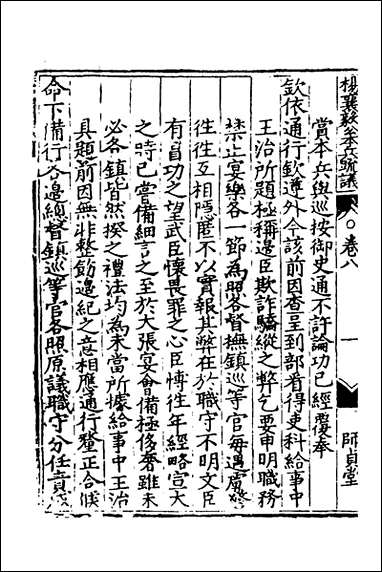 楊襄毅公本兵疏議 卷八 一 師貞堂
賞本兵與巡按御史通不許論功已經覆奉
欽依通行欽遵外今該前因查呈到部看得吏科給事中
王治所題極稱邊臣欺詐驕縱之弊乞要申明職務
禁止宴樂各一節為照各督撫鎮巡等官每遇虜警
徃徃互相隱匿不以實報其弊在於職守不明文臣
有自功之望武臣懷畏罪之心臣博徃年經略宣大
之時已嘗備細言之至於大張宴會備極侈奢雖未
必各鎮皆然揆之禮法均為未當所據給事中王治
具題前因無非整飭邊紀之意相應通行釐正合候
命下備行各邊總督鎮巡等官各照原議職守分任責